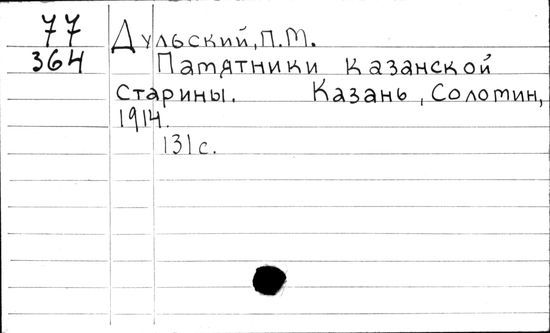 77 Дульский, П.М.
364 Памятники казанской
старины. Казань, Соломин,
1914.
131 с.